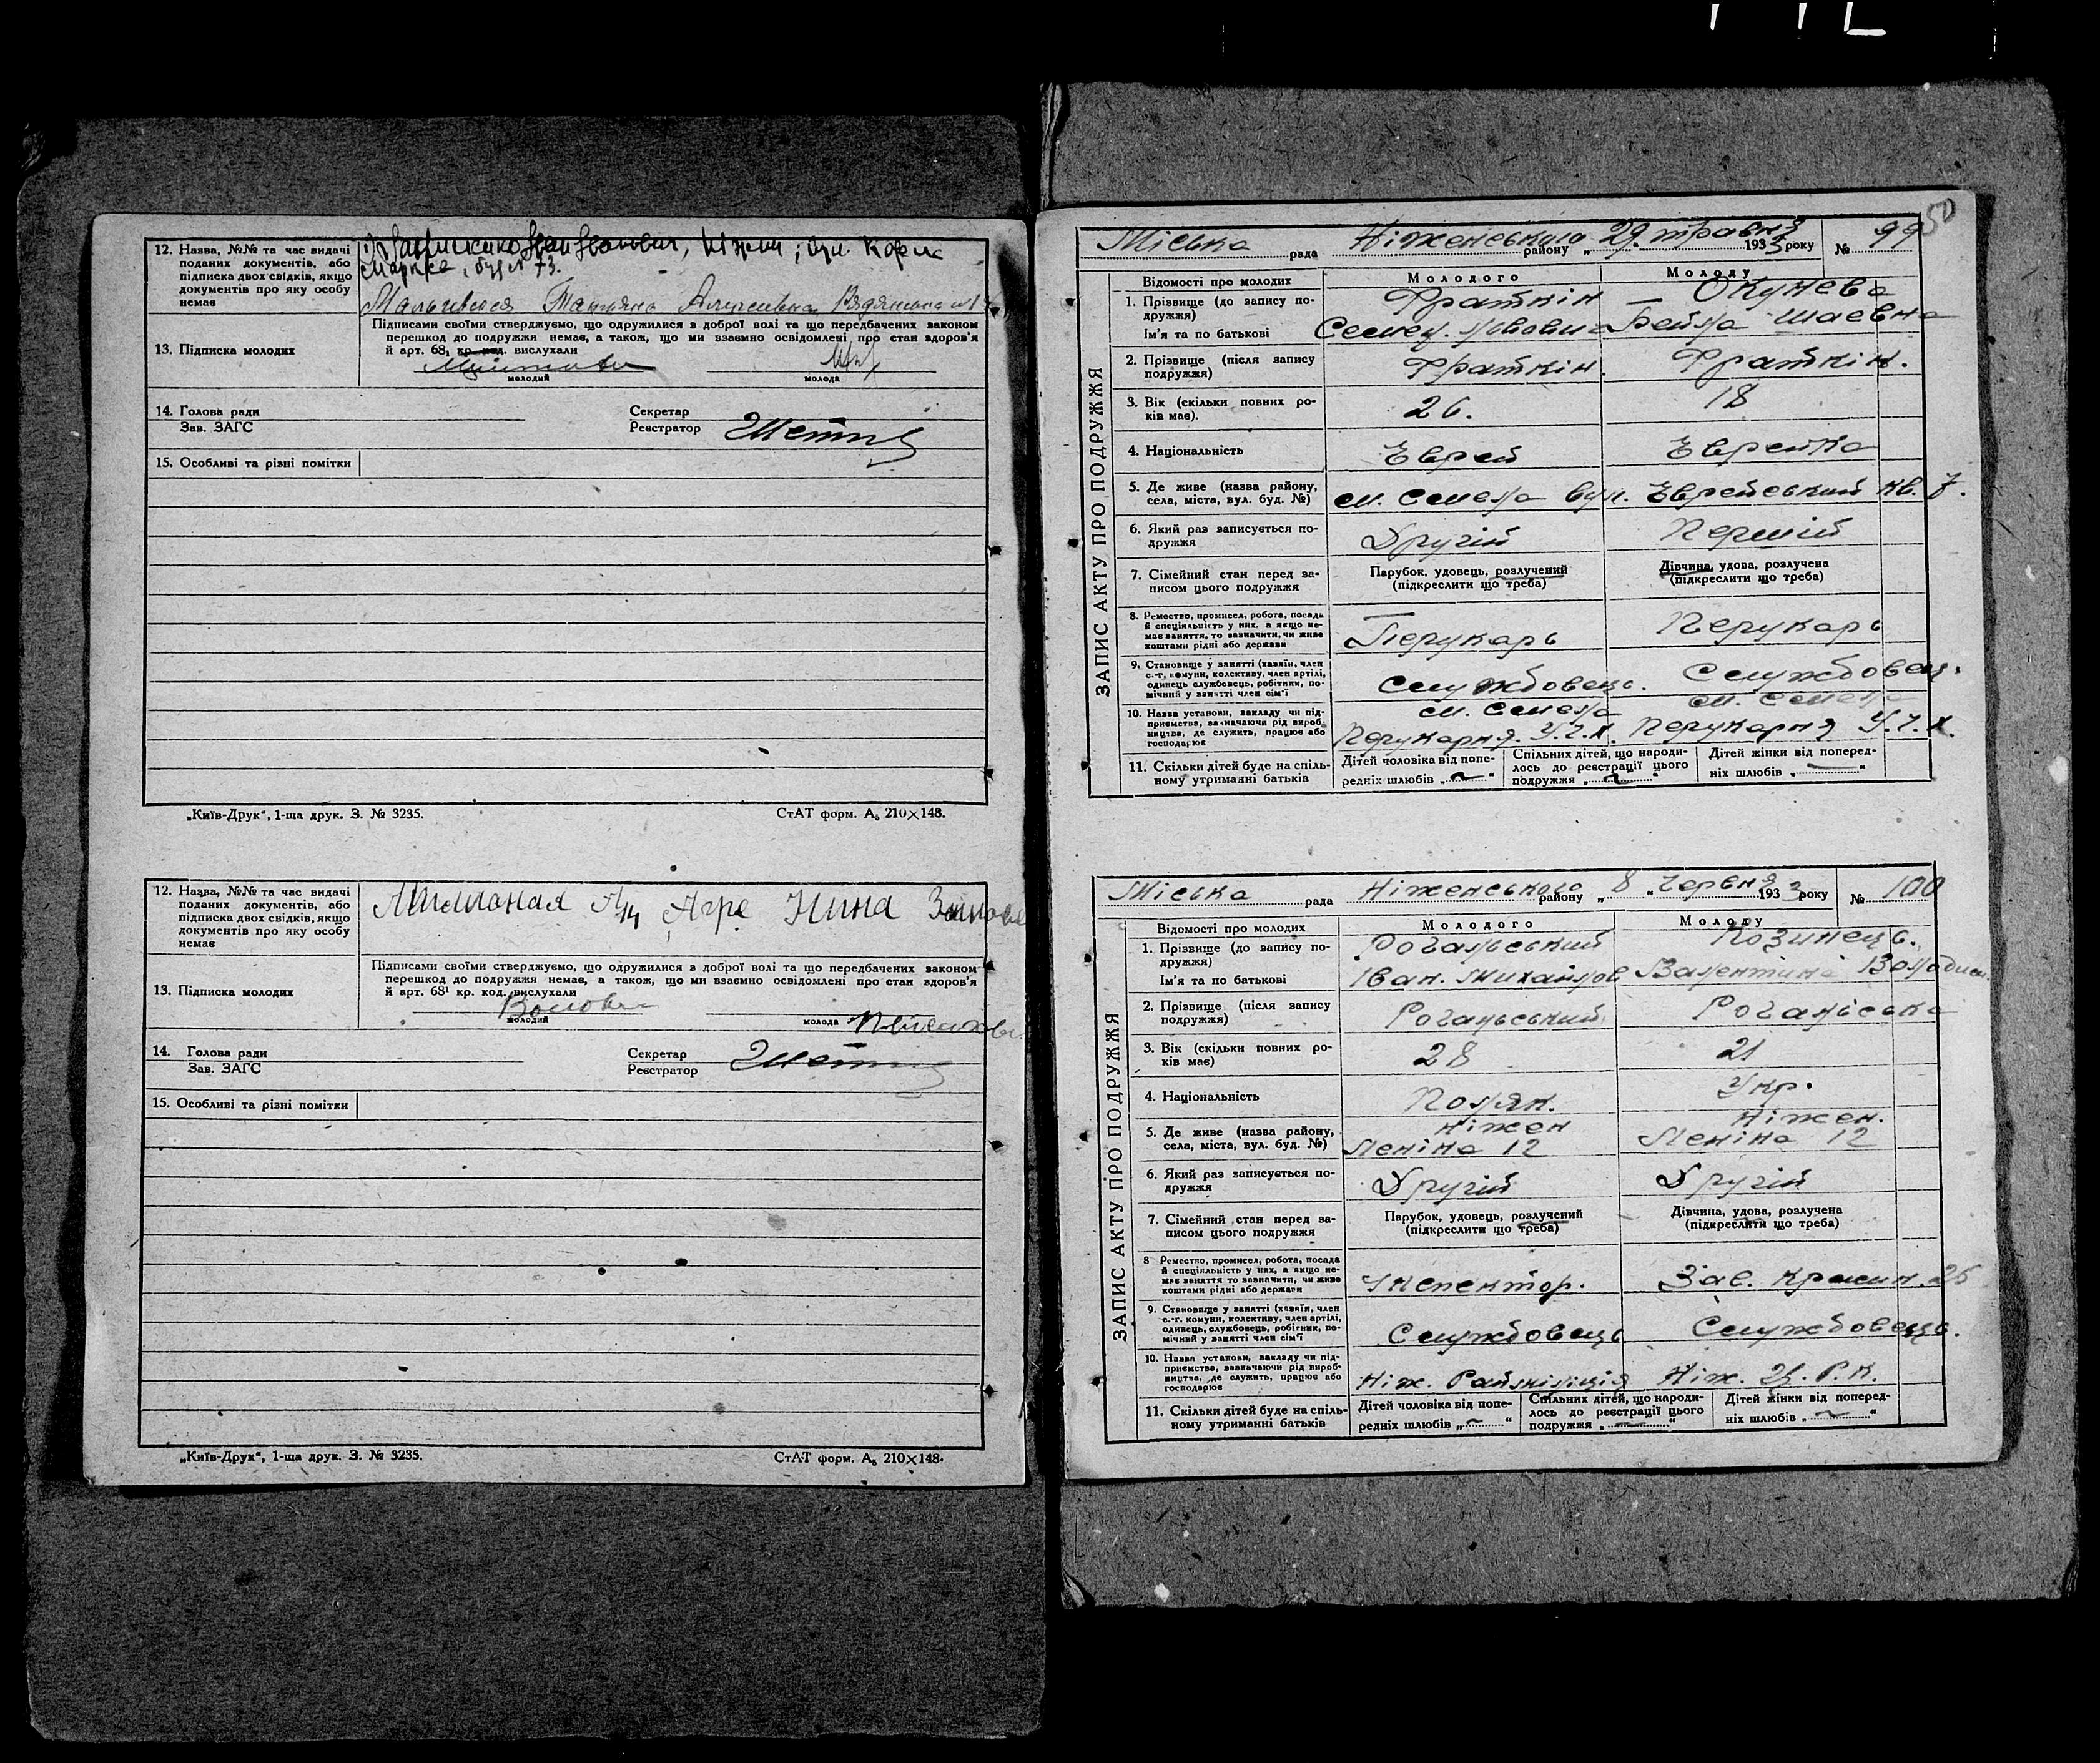 12. Назва, №№ та час видачі
поданих документів, або
підписка двох свідків, якщо
документів про яку особу
немає
Ніжин, вул. Карла
Маркса, буд № 73.
Татьяна
13. Підписка молодих
Підписами своїми стверджуємо, що одружилися з доброї волі та що передбачених законом
перешкод до подружжя немає, а також, що ми взаємно освідомлені про стан здоров'я
й арт. 68¹ кр. код. вислухали
молодий
молода
14. Голова ради
Зав. ЗАГС
Секретар
Реєстратор
15. Особливі та різні помітки
„Київ-Друк“, 1-ша друк. З. № 3235.
СтАТ форм. А₅ 210×148.
12. Назва, №№ та час видачі
поданих документів, або
підписка двох свідків, якщо
документів про яку особу
немає
Нина
13. Підписка молодих
Підписами своїми стверджуємо, що одружилися з доброї волі та що передбачених законом
перешкод до подружжя немає, а також, що ми взаємно освідомлені про стан здоров'я
й арт. 68¹ кр. код. вислухали
молодий
молода
14. Голова ради
Зав. ЗАГС
Секретар
Реєстратор
15. Особливі та різні помітки
„Київ-Друк“, 1-ша друк. З. № 3235.
СтАТ форм. А₅ 210×148.
50
Міська рада Ніженського району „29. травня 1933 року № 99
ЗАПИС АКТУ ПРО ПОДРУЖЖЯ
Відомості про молодих Молодого Молоду
1. Прізвище (до запису по-
дружжя) Фраткін Окунева
Ім'я та по батькові Львович Бейла Шаевна
2. Прізвище (після запису
подружжя) Фраткін. Фраткін.
3. Вік (скільки повних ро-
ків має). 26. 18
4. Національність Єврей Єврейка
5. Де живе (назва району,
села, міста, вул. буд. №) м. Смела вул. Єврейський кв. 7.
6. Який раз записується по-
дружжя Другій Першій
7. Сімейний стан перед за-
писом цього подружжя
Парубок, удовець, розлучений
(підкреслити що треба)
Дівчина, удова, розлучена
(підкреслити що треба)
8. Ремество, промисел, робота, посада
й спеціяльність у них, а якщо не-
має заняття, то зазначити, чи живе
коштами рідні або держави
Перукарь Перукарь
9. Становище у занятті (хазяїн, член
с.-г. комуни, колективу, член артілі,
одинець службовець, робітник, по-
мічний у занятті член сім'ї
Службовець. Службовець.
10. Назва установи, закладу чи під-
приємства, зазначаючи рід вироб-
ництва, де служить, працює або
господарює
м. Смела м. Смела
Перукарня. У.Ч.Х. Перукарня У.Ч.Х.
11. Скільки дітей буде на спіль-
ному утриманні батьків
Дітей чоловіка від попе-
редніх шлюбів „ ~ “
Спільних дітей, що народи-
лось до реєстрації цього
подружжя „ ~ “
Дітей жінки від поперед-
ніх шлюбів „ — “
Міська рада Ніженського району „ 8 „ червня 1933 року № 100
ЗАПИС АКТУ ПРО ПОДРУЖЖЯ
Відомості про молодих Молодого Молоду
1. Прізвище (до запису по-
дружжя) Рогальський Козинець.
Ім'я та по батькові Іван. Михайлов Валентина
2. Прізвище (після запису
подружжя) Рогальський Рогальська
3. Вік (скільки повних ро-
ків має) 28 21
4. Національність Поляк. Укр.
5. Де живе (назва району,
села, міста, вул. буд. №)
Ніжен Ніжен.
Леніна 12 Леніна 12
6. Який раз записується по-
дружжя Другій Другій
7. Сімейний стан перед за-
писом цього подружжя
Парубок, удовець, розлучений
(підкреслити що треба)
Дівчина, удова, розлучена
(підкреслити що треба)
8 Ремество, промисел, робота, посада
й спеціяльність у них, а якщо не-
має заняття то зазначити, чи живе
коштами рідні або держави
Інспектор. Зав. 25
9. Становище у занятті (хазяїн, член
с.-г. комуни, колективу, член артілі,
одинець, службовець, робітник, по-
мічний у занятті член сім'ї
Службовець Службовець.
10. Назва установи, закладу чи під-
приємства, зазначаючи рід вироб-
ництва, де служить, працює або
господарює
Ніж. Райміліція Ніж.
11. Скільки дітей буде на спіль-
ному утриманні батьків
Дітей чоловіка від попе-
редніх шлюбів „ ~ “
Спільних дітей, що народи-
лось до реєстрації цього
подружжя „ — “
Дітей жінки від поперед-
ніх шлюбів „ ~ “